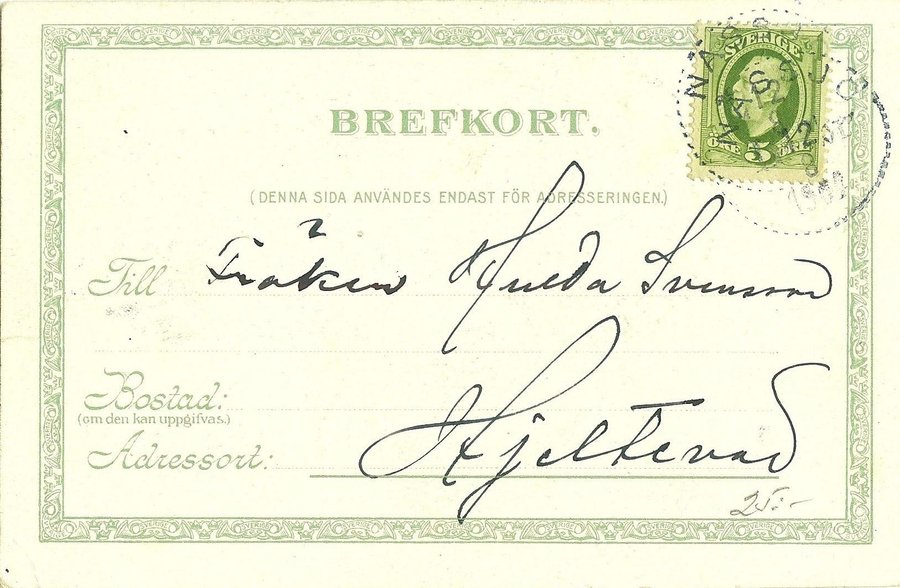 SVERIGE
5
ÖRE
NÄSSJÖ
BREFKORT.
(DENNA SIDA ANVÄNDES ENDAST FÖR ADRESSERINGEN.)
Till Fröken Hulda Svensson
Bostad:
(om den kan uppgifvas.)
Adressort: Hjeltevad
25:-